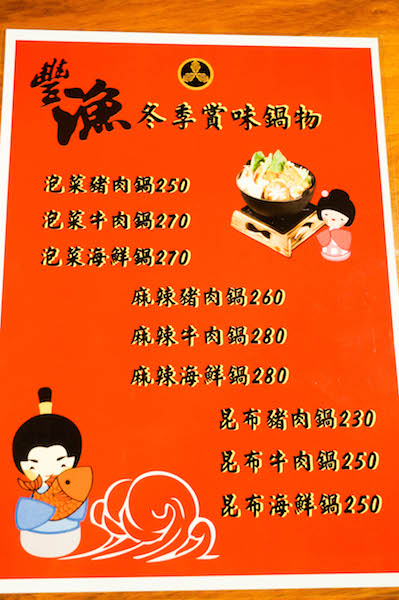 豐漁 冬季賞味鍋物
泡菜豬肉鍋250
泡菜牛肉鍋270
泡菜海鮮鍋270
麻辣豬肉鍋260
麻辣牛肉鍋280
麻辣海鮮鍋280
昆布豬肉鍋230
昆布牛肉鍋250
昆布海鮮鍋250